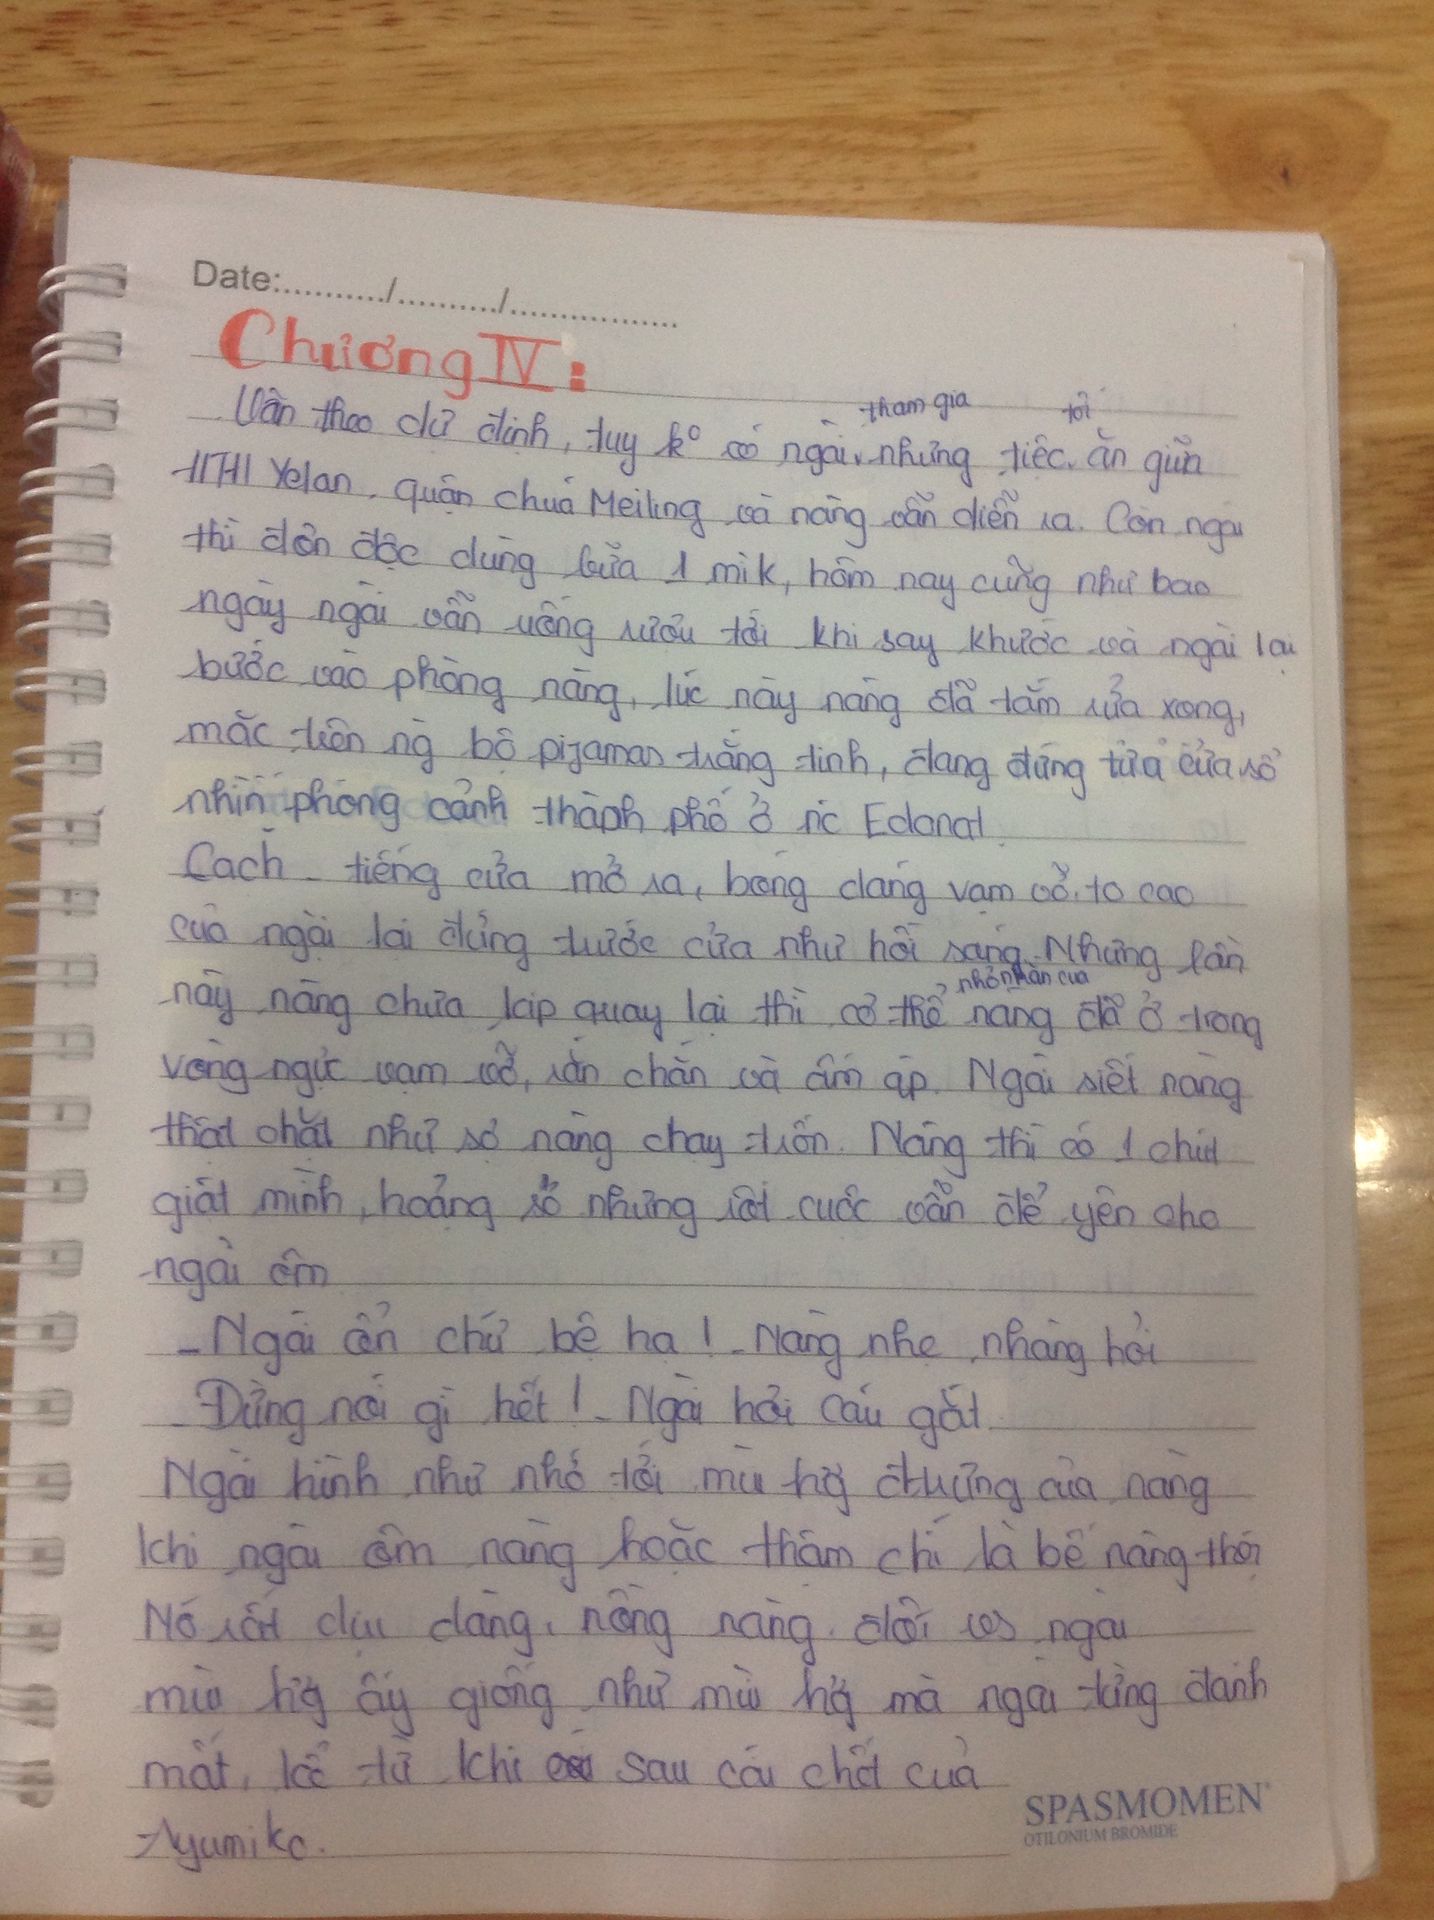 Date:........../........../................
Chương IV:
Vẫn theo dự định, tuy k° có ngài tham gia nhưng tiệc tối ăn giữa
HTH Yelan, quận chúa Meiling và nàng vẫn diễn ra. Còn ngài
thì đơn độc dùng bữa 1 mik, hôm nay cũng như bao
ngày ngài vẫn uống rượu tới khi say khướt và ngài lại
bước vào phòng nàng, lúc này nàng đã tắm rửa xong,
mặc trên ng bộ pijaman trắng tinh, đang đứng tựa cửa sổ
nhìn phong cảnh thành phố ở nc Edonal
Cạch - tiếng cửa mở ra, bóng dáng vạm vỡ, to cao
của ngài lại đứng trước cửa như hồi sáng. Nhưng lần
này nàng chưa kịp quay lại thì cơ thể nhỏ nhắn của nàng đã ở trong
vòng ngực vạm vỡ, rắn chắn và ấm áp. Ngài siết nàng
thật chặt như sợ nàng chạy trốn. Nàng thì có 1 chút
giật mình, hoảng sợ nhưng rốt cuộc vẫn để yên cho
ngài ôm
- Ngài ổn chứ bệ hạ! - Nàng nhẹ nhàng hỏi
- Đừng nói gì hết! - Ngài hơi cáu gắt
Ngài hình như nhớ tới mùi hg đtrưng của nàng
khi ngài ôm nàng hoặc thậm chí là bế nàng thôi
Nó rất dịu dàng, nồng nàng. đối vs ngài
mùi hg ấy giống như mùi hg mà ngài từng đánh
mất, kể từ khi sau cái chết của
Ayumiko.
SPASMOMEN®
OTILONIUM BROMIDE